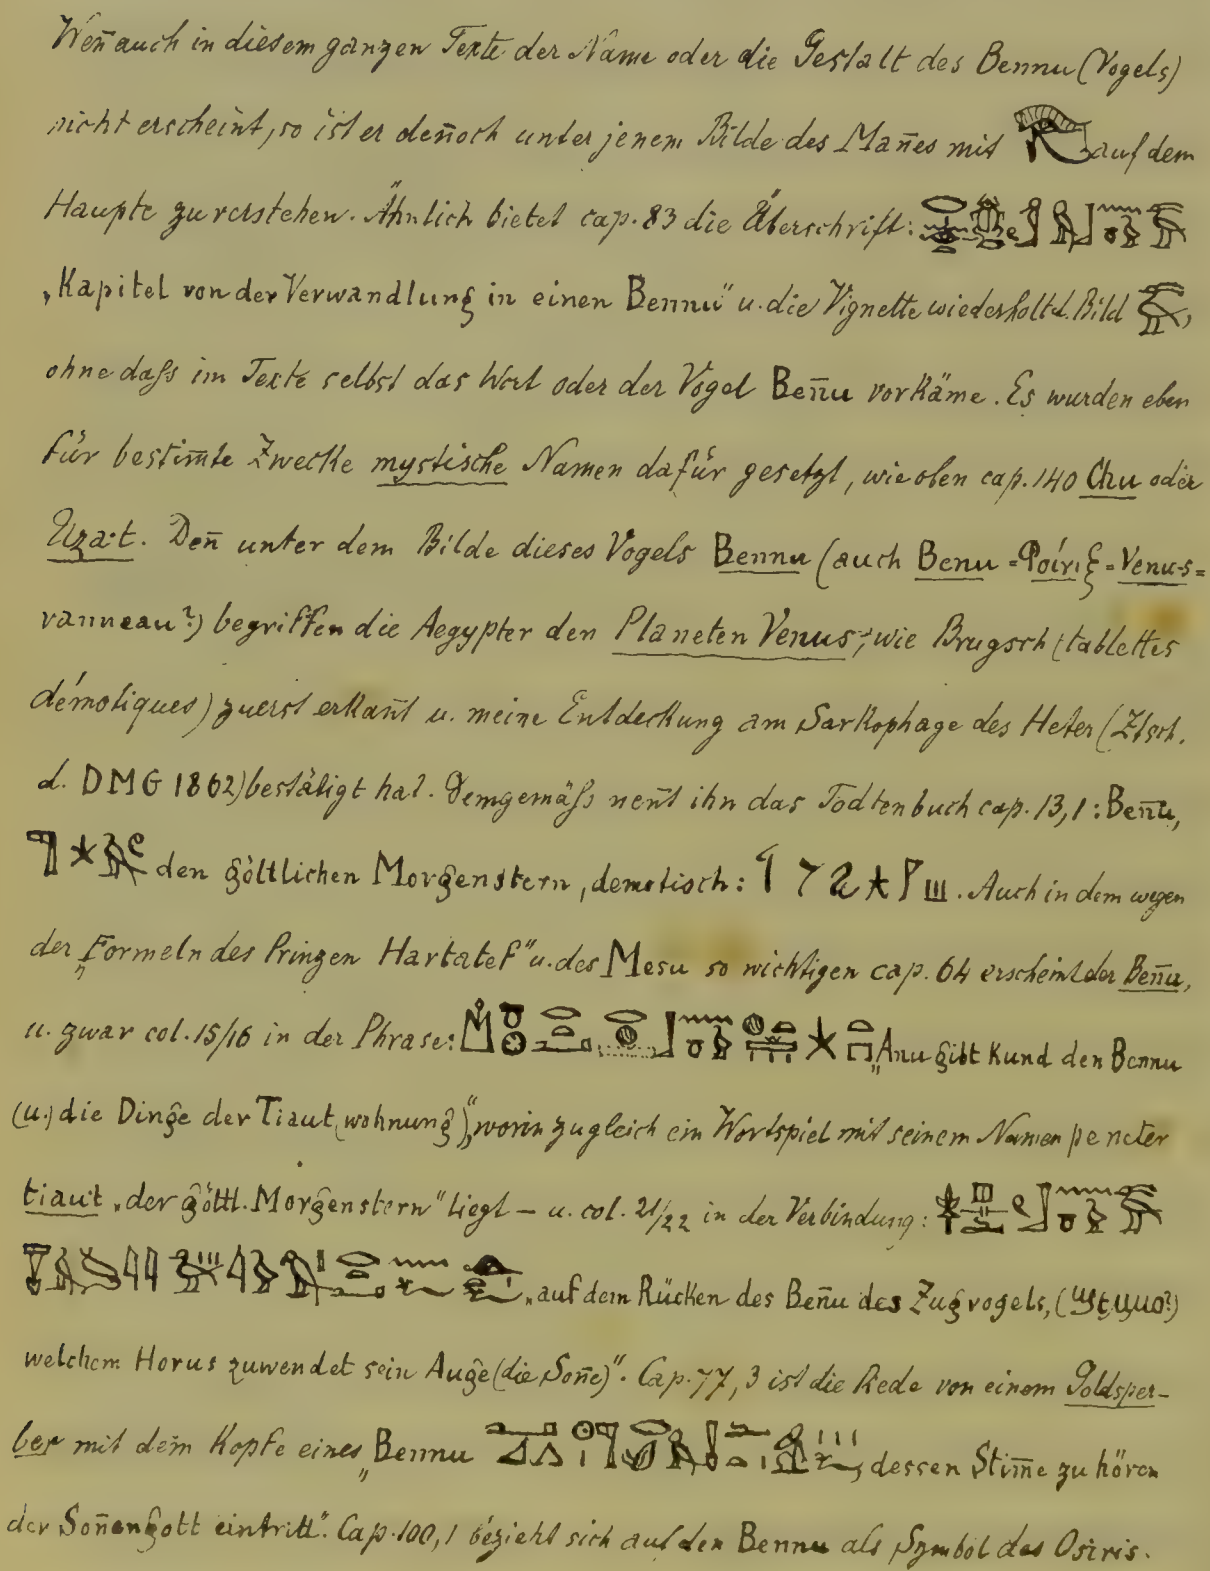 Weñ auch in diesem ganzen Texte der Name oder die Gestalt des Bennu (Vogels)
nicht erscheint, so ist er deñoch unter jenem Bilde des Mañes mit auf dem
Haupte zu verstehen. Ähnlich bietet cap. 83 die Überschrift:
„Kapitel von der Verwandlung in einen Bennu" u. die Vignette wiederholt d. Bild
ohne daſs im Texte selbst das Wort oder der Vogel Beñu vorkäme. Es wurden eben
für bestim̄te Zwecke mystische Namen dafür gesetzt, wie oben cap. 140 Chu oder
Uza-t. Deñ unter dem Bilde dieses Vogels Bennu (auch Benu = = Venu-s =
vanneau?) begriffen die Aegypter den Planeten Venus, wie Brugsch (tablettes
démotiques) zuerst erkañt u. meine Entdeckung am Sarkophage des Heter (Ztsch.
d. DMG 1862) bestätigt hat. Demgemäſs neñt ihn das Todtenbuch cap. 13,1: Beñu,
den göttlichen Morgenstern, demotisch: . Auch in dem wegen
der „Formeln des Prinzen Hartatef" u. des Mesu so wichtigen cap. 64 erscheint der Beñu,
u. zwar col. 15/16 in der Phrase: „Anu gibt kund den Bennu
(u.) die Dinge der Tiaut (wohnung)", worin zugleich ein Wortspiel mit seinem Namen pe neter
tiaut „der göttl. Morgenstern" liegt – u. col. 21/22 in der Verbindung:
„auf dem Rücken des Beñu des Zugvogels,
welchem Horus zuwendet sein Auge (die Soñe)". Cap. 77, 3 ist die Rede von einem Goldsper-
ber mit dem Kopfe eines „Bennu dessen Stim̄e zu hören
der Soñengott eintritt". Cap. 100, 1 bezieht sich auf den Bennu als Symbol des Osiris.